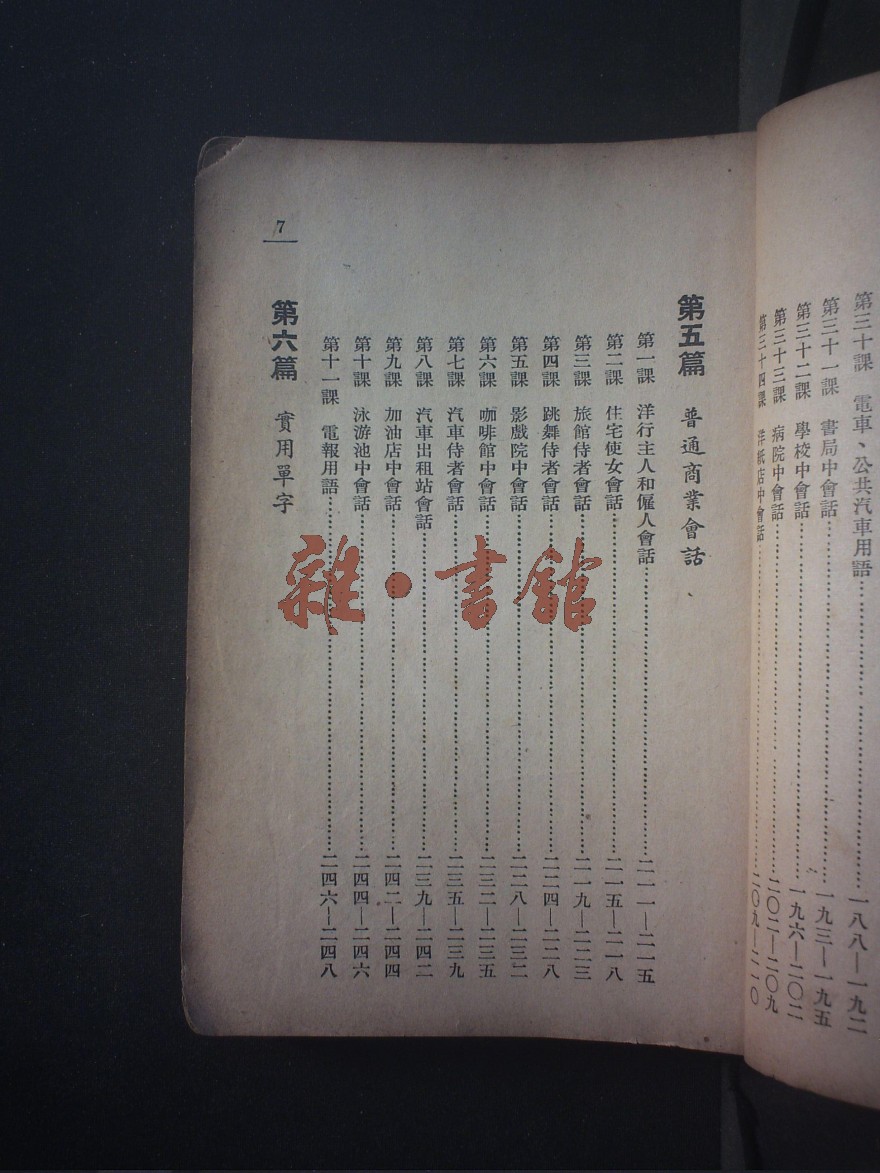 第三十課　電車、公共汽車用語……一八八—一九二
第三十一課　書局中會話……一九三—一九五
第三十二課　學校中會話……一九六—二〇二
第三十三課　病院中會話……二〇二—二〇九
第三十四課　洋紙店中會話……二〇九—二一〇
第五篇　普通商業會話
第一課　洋行主人和僱人會話……二一一—二一五
第二課　住宅使女會話……二一五—二一八
第三課　旅館侍者會話……二一九—二二三
第四課　跳舞侍者會話……二二四—二二八
第五課　影戲院中會話……二二八—二三二
第六課　咖啡館中會話……二三二—二三五
第七課　汽車侍者會話……二三五—二三九
第八課　汽車出租站會話……二三九—二四二
第九課　加油店中會話……二四二—二四四
第十課　泳游池中會話……二四四—二四六
第十一課　電報用語……二四六—二四八
第六篇　實用單字
7
雜·書館